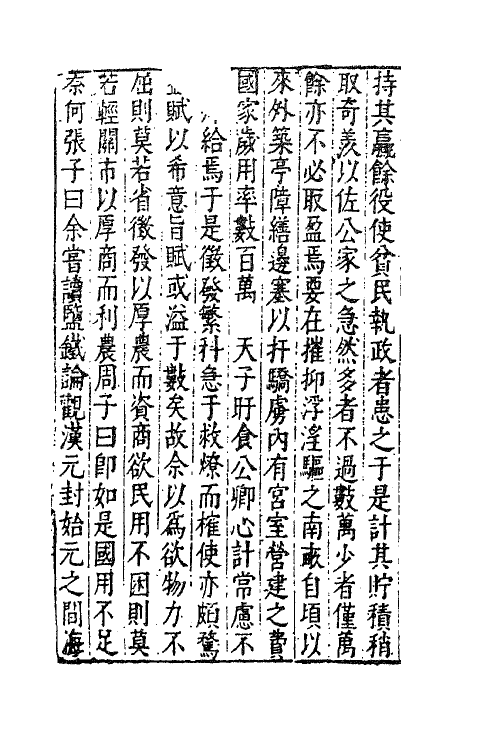 持其贏餘役使貧民執政者患之于是計其貯積稍
取奇羨以佐公家之急然多者不過數萬少者僅萬
餘亦不必取盈焉要在摧抑浮淫驅之南畝自頃以
來外築亭障繕邊塞以扞驕虜內有宮室營建之費
國家歲用率數百萬　天子旰食公卿心計常慮不
給焉于是徵發繁科急于救燎而榷使亦頗騖
賦以希意旨賦或溢于數矣故余以爲欲物力不
屈則莫若省徵發以厚農而資商欲民用不困則莫
若輕關市以厚商而利農周子曰卽如是國用不足
奈何張子曰余嘗讀鹽鐵論觀漢元封始元之間海